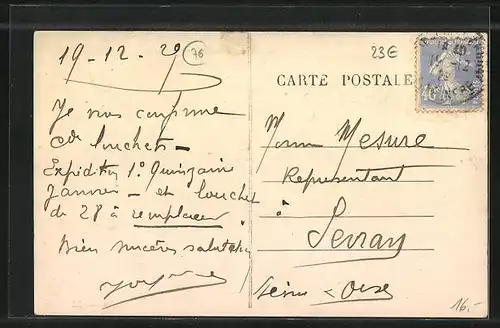 19-12-29
76
23€
CARTE POSTALE
Je vous confirme
cde louchets -
Expédition 1° Quinzaine
Janvier - et louchet
de 28 à remplacer
bien sincères salutations
Monsr Mesure
Représentant
à
Sevran
Seine & Oise
16.-